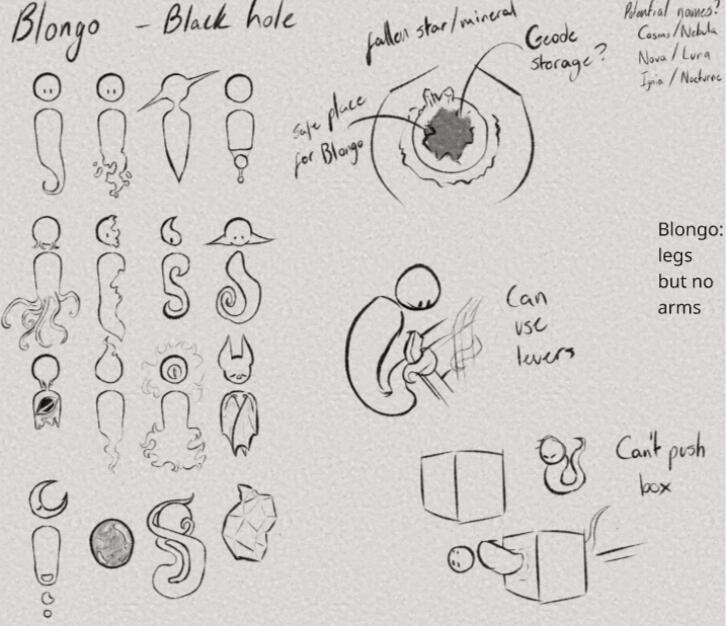 Blongo - Black hole
fallen star/mineral
Geode
storage?
safe place
for Blongo
Potential names?
Cosmo/Nebula
Nova / Luna
Ignia / Nocturne
Blongo:
legs
but no
arms
Can
use
levers
Can't push
box